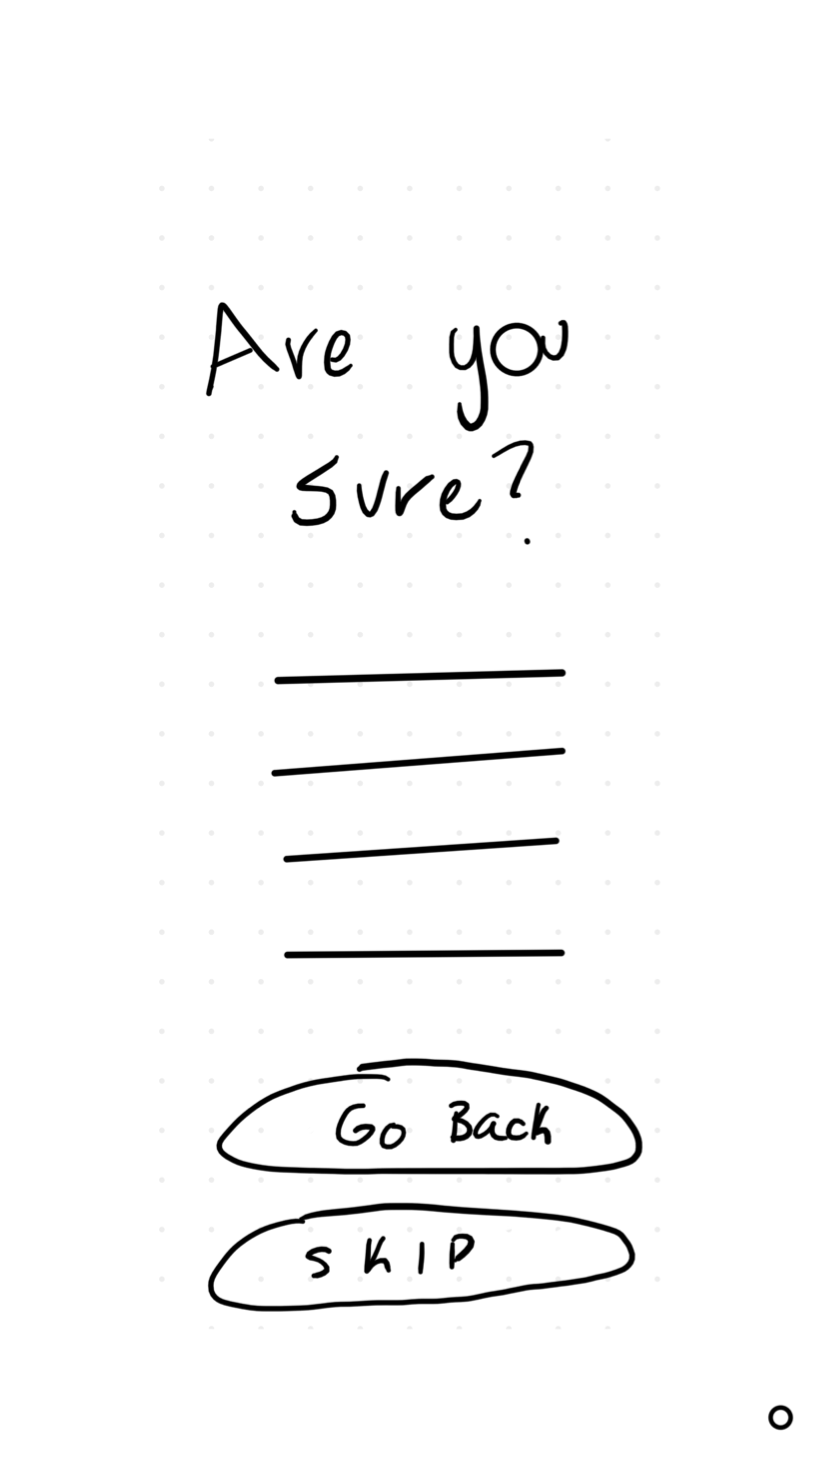 Are you
sure?
Go Back
SKIP